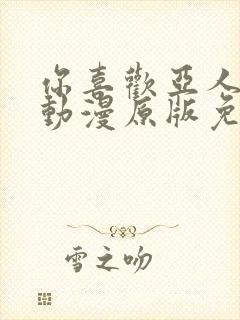 你喜歡亞人
動漫原版免
雪之吻